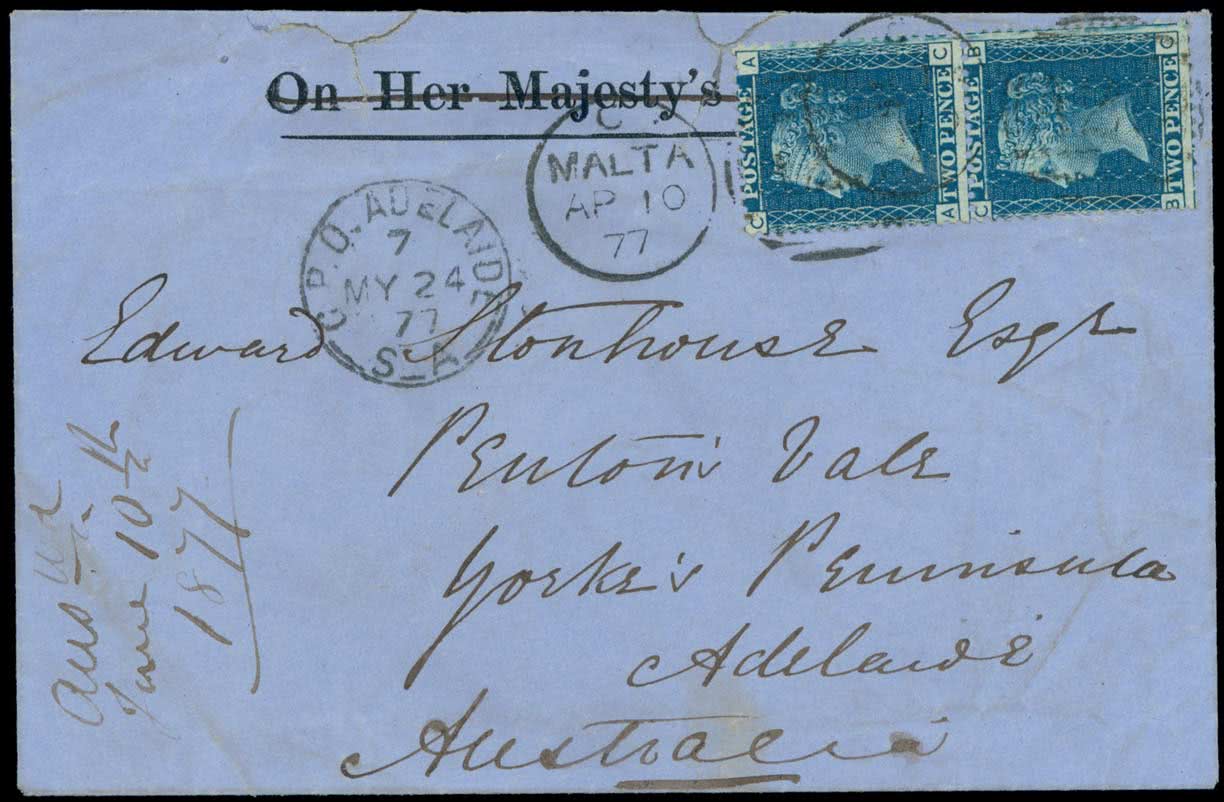 On Her Majesty's
C
MALTA
AP 10
77
G.P.O. ADELAIDE
7
MY 24
77
S_A
C POSTAGE A
A TWO PENCE C
C POSTAGE B
B TWO PENCE C
C
Edward Stonhouse Esqr
Penton Vale
Yorke's Peninsula
Adelaide
Australia
Answd
June 10th
1877